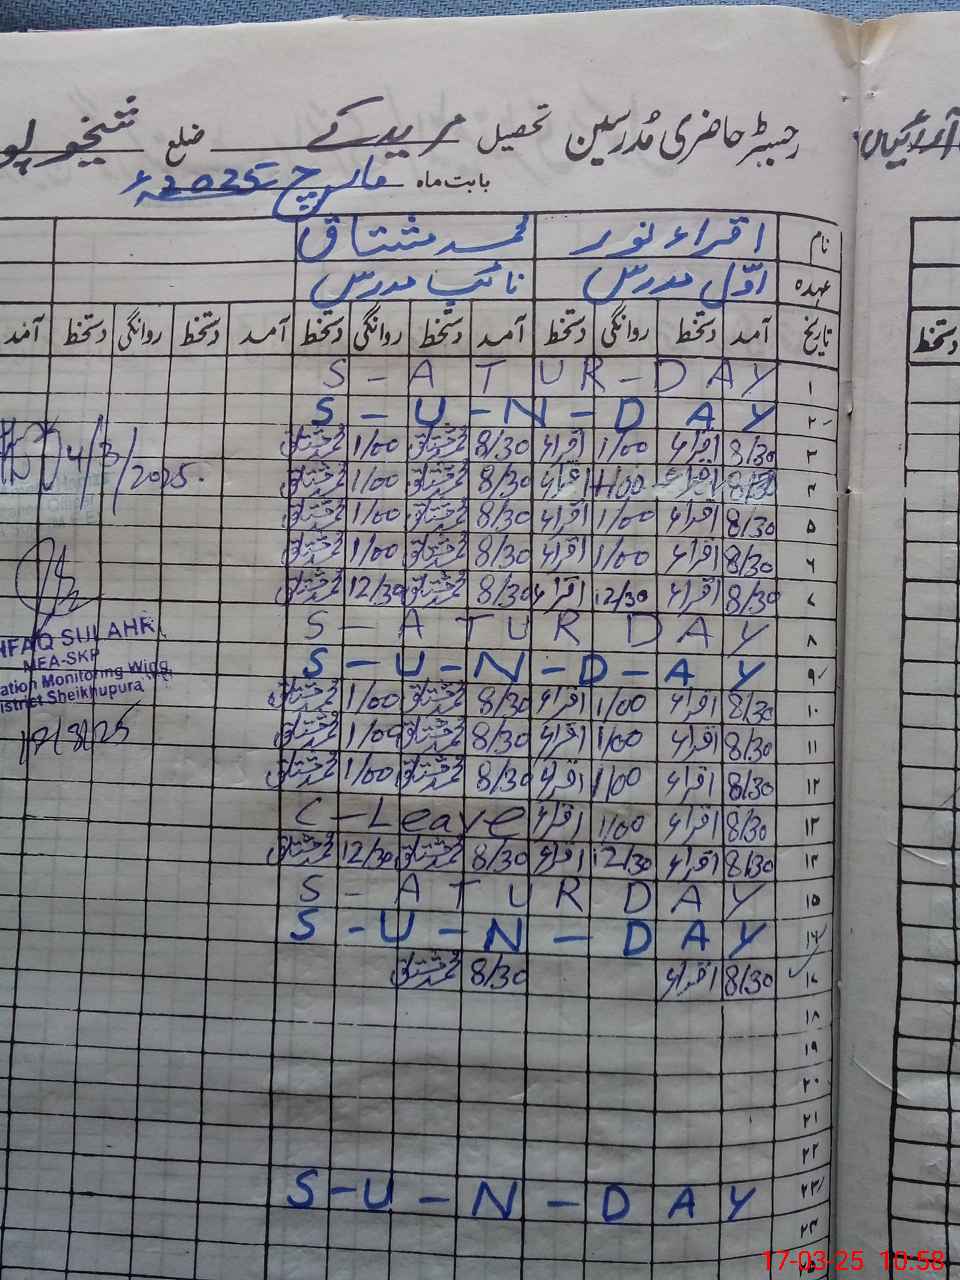 رجسٹر حاضری مُدرسین تحصیل مریدکے ضلع شیخوپو
بابت ماہ مارچ 2025ء
نام اقراء نور محمد مشتاق
عہدہ اوّل مدرس نائب مدرس
تاریخ آمد دستخط روانگی دستخط آمد دستخط روانگی دستخط آمد دستخط روانگی دستخط آمد
دستخط
۱ S-ATUR-DAY
۲ S-U-N-DAY
۳ 8/30 اقراء 1/00 اقراء 8/30 محمد مشتاق 1/00 محمد مشتاق
۴ 8/30 اقراء 1/00 اقراء 8/30 محمد مشتاق 1/00 محمد مشتاق
4/3/2025.
۵ 8/30 اقراء 1/00 اقراء 8/30 محمد مشتاق 1/00 محمد مشتاق
۶ 8/30 اقراء 1/00 اقراء 8/30 محمد مشتاق 1/00 محمد مشتاق
۷ 8/30 اقراء 12/30 اقراء 8/30 محمد مشتاق 12/30 محمد مشتاق
۸ S-ATUR DAY
۹ S-U-N-D-AY
MEA-SKP
ation Monitoring Wing
istrict Sheikhupura
۱۰ 8/30 اقراء 1/00 اقراء 8/30 محمد مشتاق 1/00 محمد مشتاق
۱۱ 8/30 اقراء 1/00 اقراء 8/30 محمد مشتاق 1/00 محمد مشتاق
۱۲ 8/30 اقراء 1/00 اقراء 8/30 محمد مشتاق 1/00 محمد مشتاق
۱۳ 8/30 اقراء 1/00 اقراء C-Leave
۱۴ 8/30 اقراء 12/30 اقراء 8/30 محمد مشتاق 12/30 محمد مشتاق
۱۵ S-ATUR DAY
۱۶ S-U-N-DAY
۱۷ 8/30 اقراء 8/30 محمد مشتاق
۱۸
۱۹
۲۰
۲۱
۲۲
۲۳ S-U-N-DAY
۲۴
17-03-25 10:58